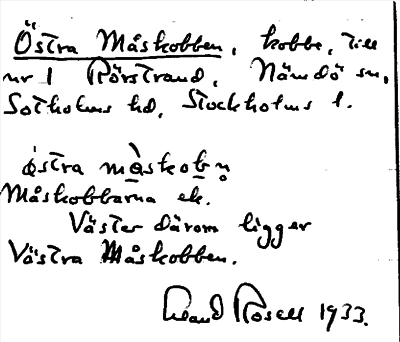 Östra Måskobben, kobbe, till
nr 1 Rörstrand, Nämdö sn,
Sotholms hd, Stockholms l.
östra måskobn̥
Måskobbarna ek.
Väster därom ligger
Västra Måskobben.
Rosell 1933.